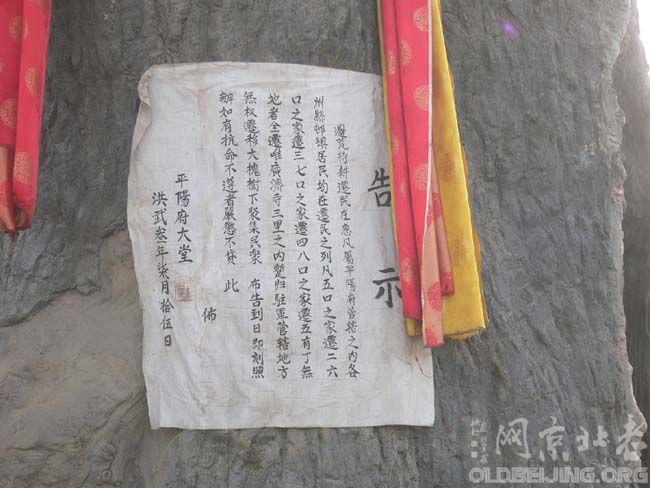 告示
邊荒待耕遷民在急凡屬平陽府管轄之内各
州縣邨鎮居民均在遷民之列凡五口之家遷二六
口之家遷三七口之家遷四八口之家遷五有丁無
地者全遷唯廣濟寺三里之内楚归駐軍管轄地方
無权遷移大槐樹下聚集民衆 布告到日即刻照
辦如有抗命不遵者嚴惩不貸 此
佈
平陽府大堂
洪武叁年柒月拾伍日
网京北老
OLDBEIJING.ORG